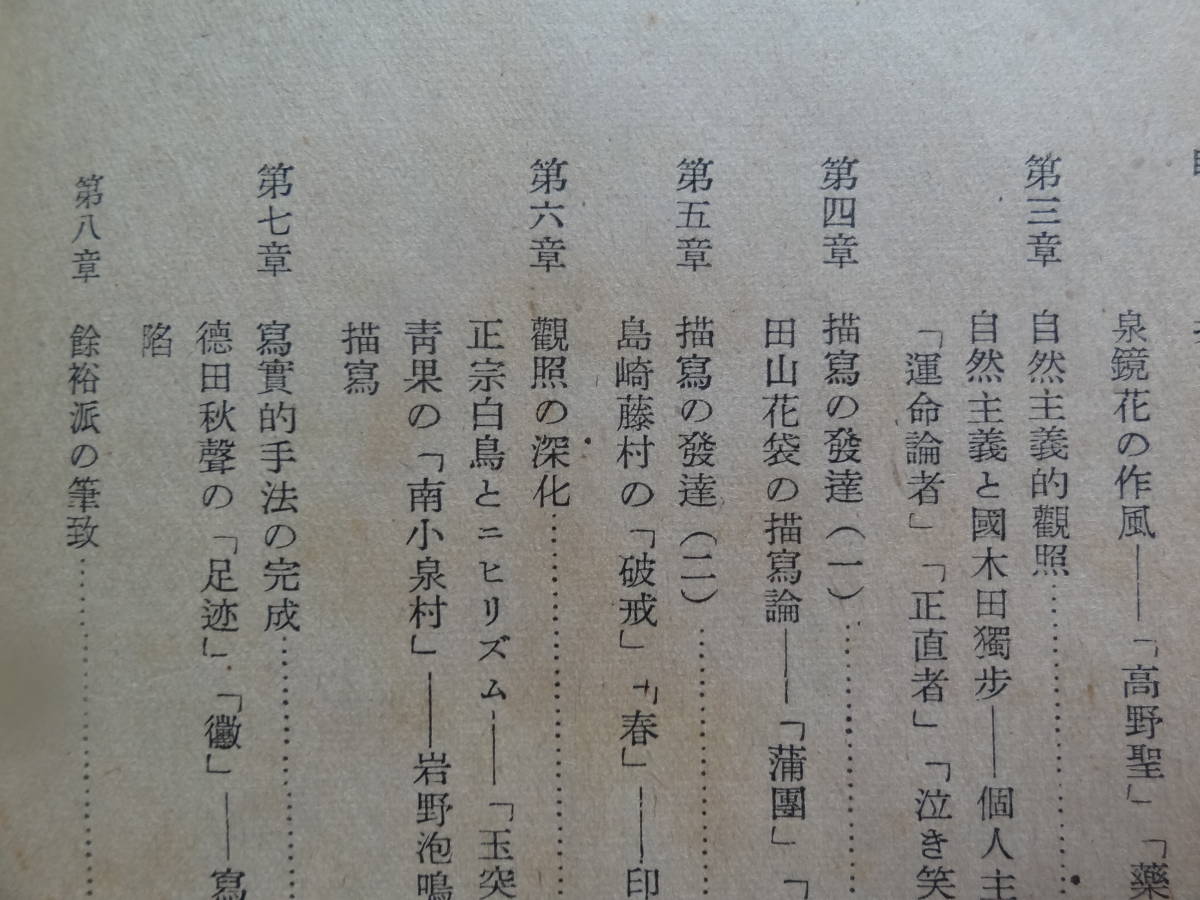 泉鏡花の作風――「高野聖」「藥
第三章 自然主義的觀照…………
自然主義と國木田獨步――個人主
「運命論者」「正直者」「泣き笑
第四章 描寫の發達(一)…………
田山花袋の描寫論――「蒲團」「
第五章 描寫の發達(二)…………
島崎藤村の「破戒」「春」――印
第六章 觀照の深化…………
正宗白鳥とニヒリズム――「玉突
靑果の「南小泉村」――岩野泡鳴
描寫
第七章 寫實的手法の完成…………
德田秋聲の「足迹」「黴」――寫
陷
第八章 餘裕派の筆致…………